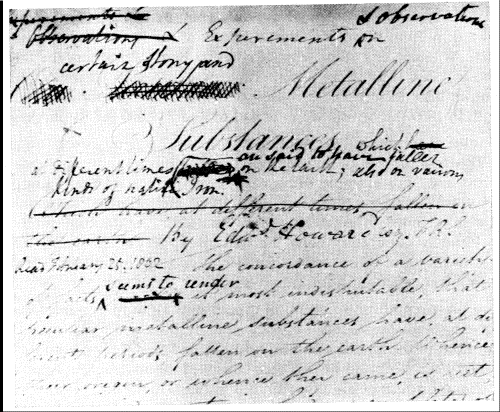 Experiments &
Observations & Experiments on & observations
certain stony and
Metalline
Substances, which
at different times are said to have fallen
on the Earth; also on various
kinds of native Iron.
which have at different times fallen on
the earth By Edwd. Howard Esq. F.R.S.
Read February 25, 1802 the concordance of a variety
of facts seems to render it most indisputable, that
peculiar metalline substances have, at di
periods fallen on the earth. Whence
their origin, or whence they came, is yet,